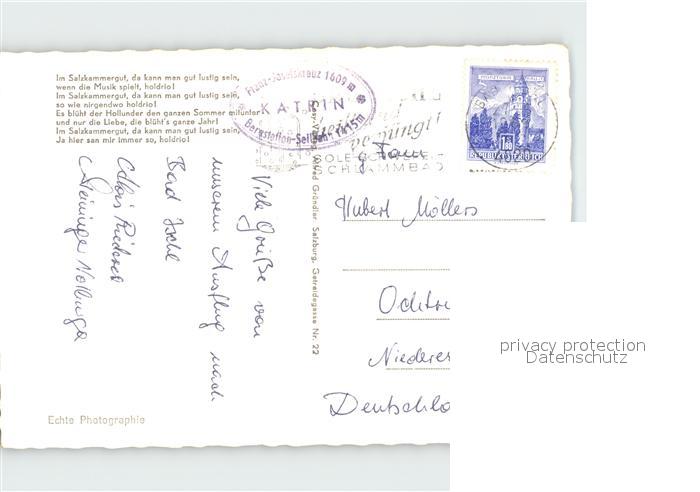 Im Salzkammergut, da kann man gut lustig sein,
wenn die Musik spielt, holdrio!
Im Salzkammergut, da kann man gut lustig sein,
so wie nirgendwo holdrio!
Es blüht der Hollunder den ganzen Sommer mitunter
und nur die Liebe, die blüht's ganze Jahr!
Im Salzkammergut, da kann man gut lustig sein,
Ja hier san mir immer so, holdrio!
Franz-Josefskreuz 1609 m
KATRIN
Bergstation-Seilbahn 1415 m
verjüngt
SCHLAMMBAD
1.80
REPUBLIK ÖSTERREICH
Viele Grüße von
unserem Ausflug nach
Bad Ischl
Gründler, Salzburg, Getreidegasse Nr. 22
Fam
Hubert Möllers
Ochtru
Niederer
Deutschla
Echte Photographie
privacy protection
Datenschutz